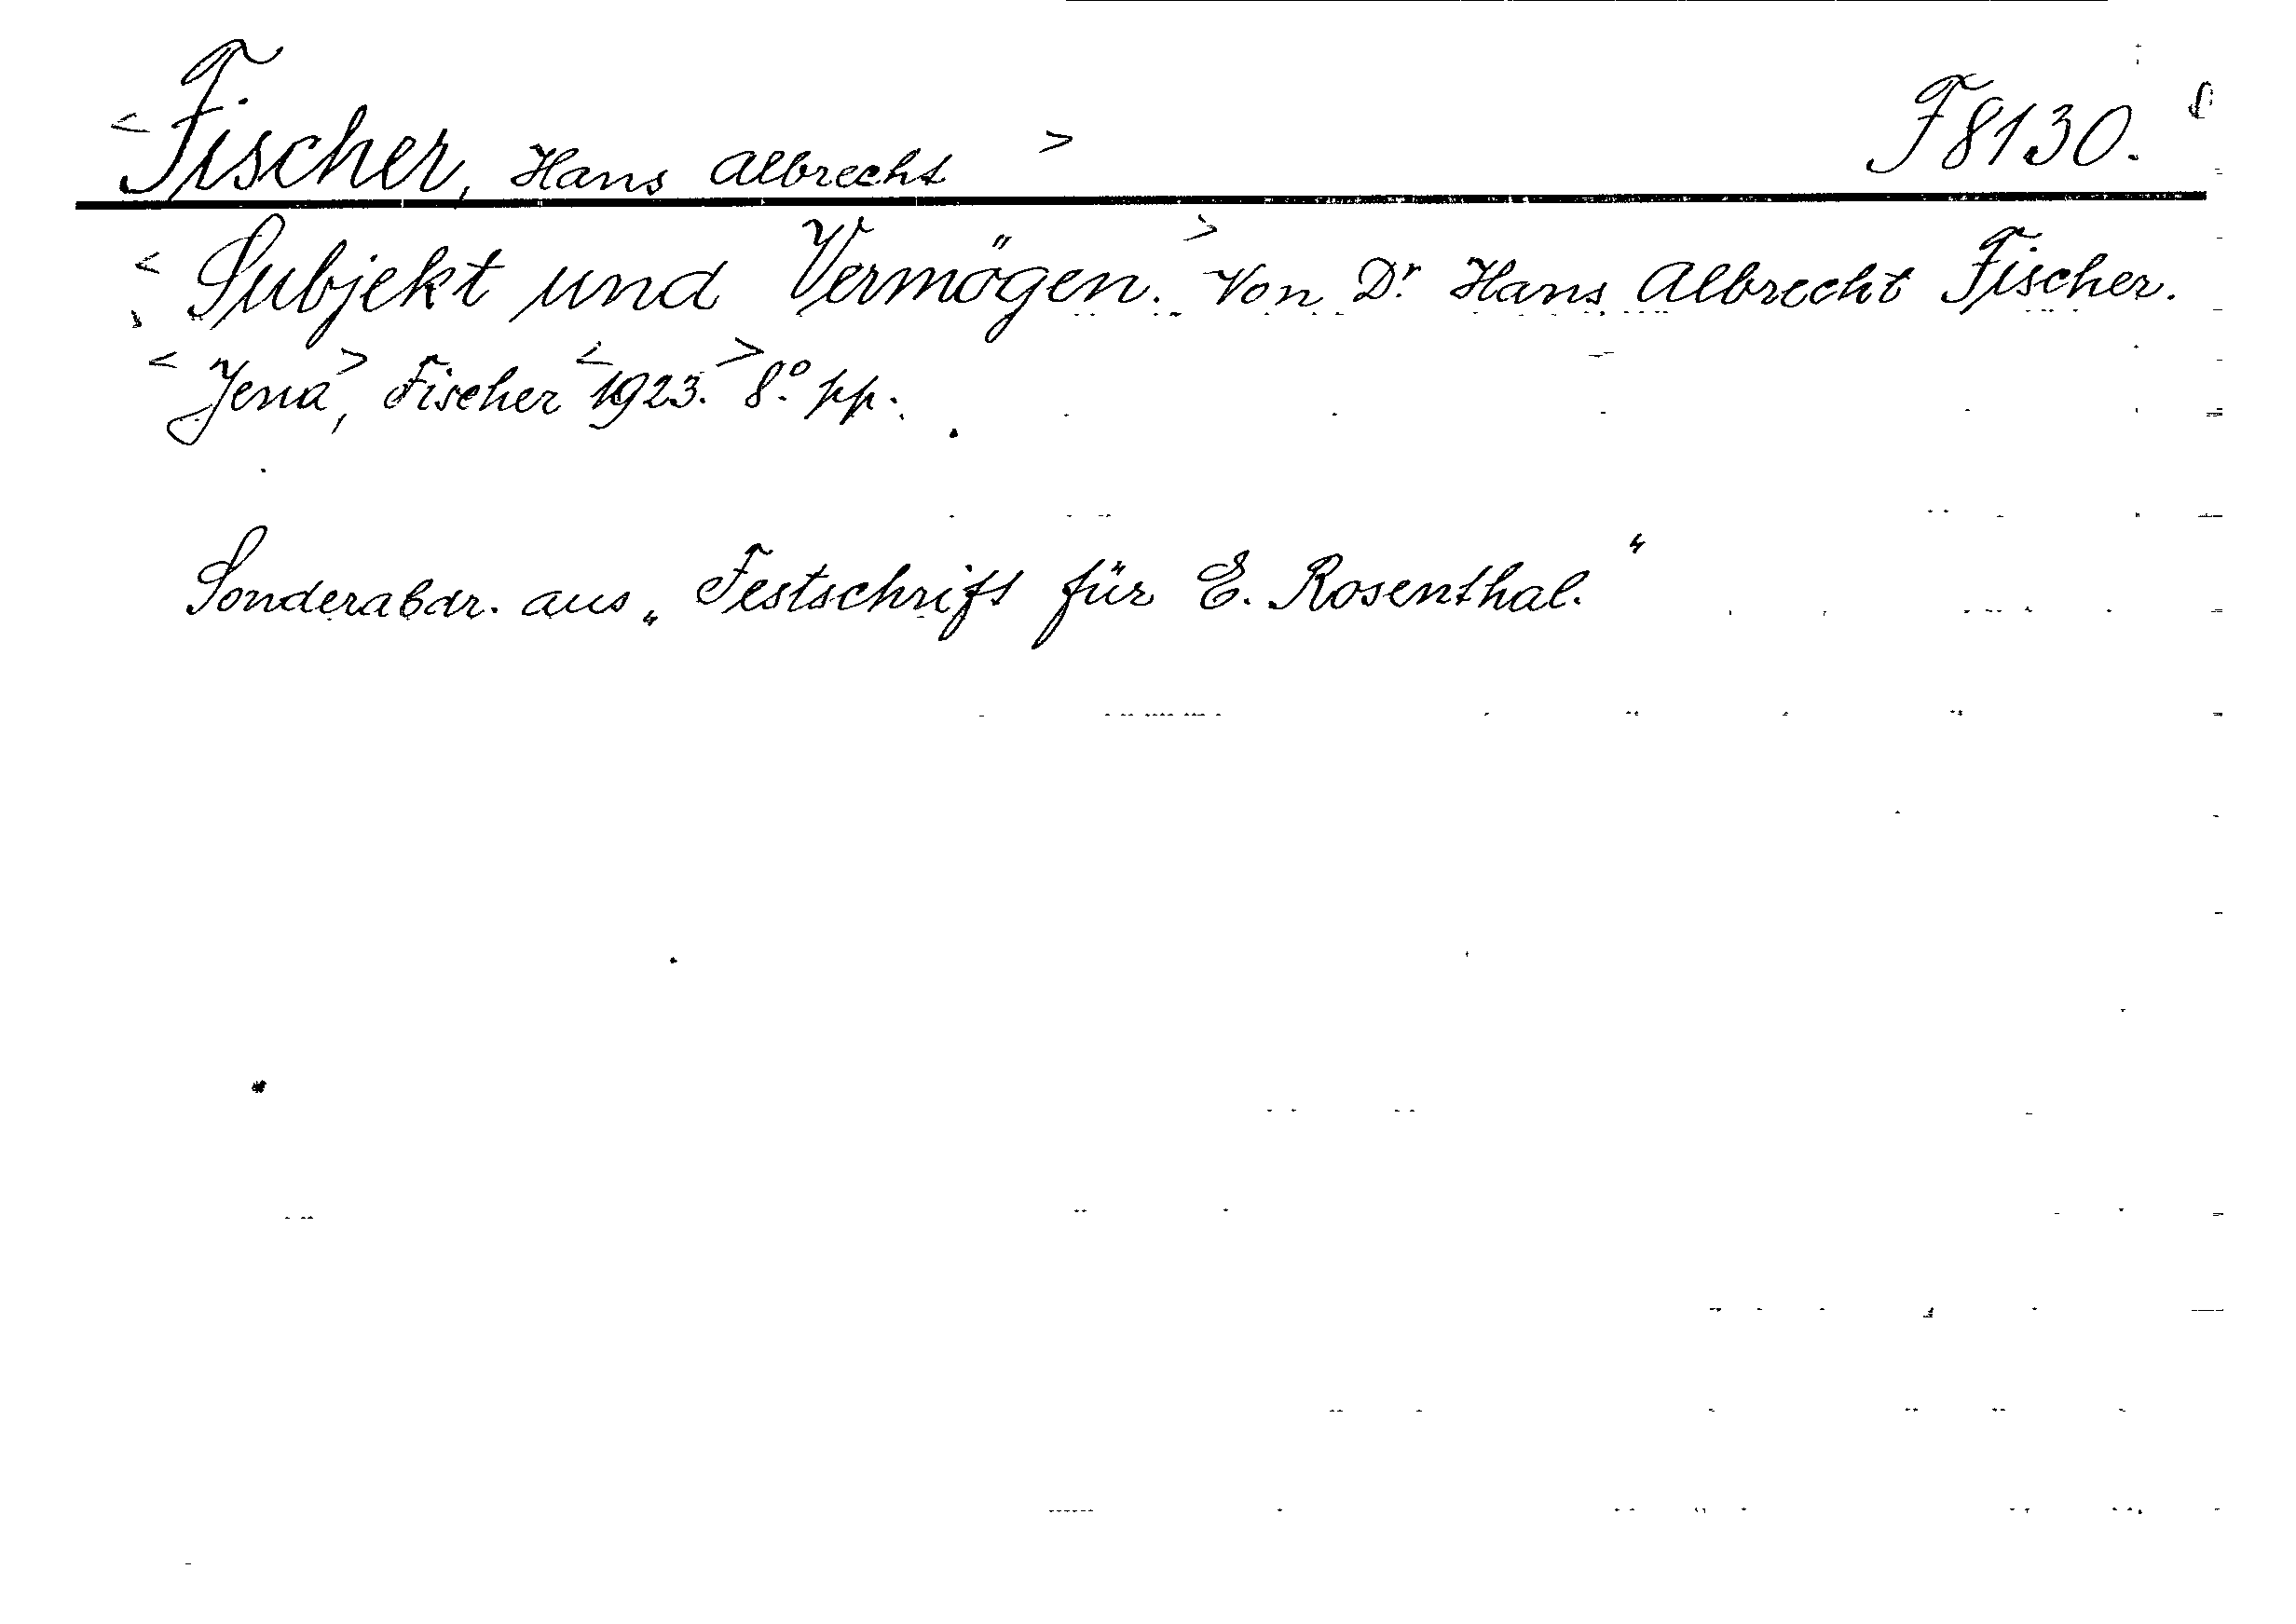 <Fischer, Hans Albrecht> F8130.
<Subjekt und Vermögen.> Von Dr. Hans Albrecht Fischer.
<Jena>, Fischer <1923.> 8.° pp.
Sonderabdr. aus „Festschrift für E. Rosenthal."